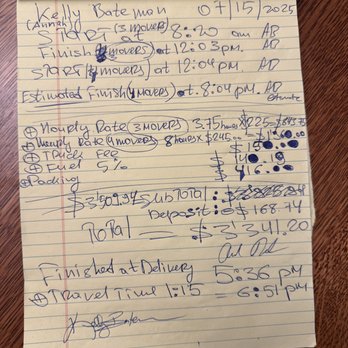 Kelly Bateman 07/15/2025
(Annah)
START (3 MOVERS) at 8:20 am AB
Finish (4 MOVERS) at 12:03 pm. AB
START (4 MOVERS) at 12:04 pm. AB
Estimated Finish (4 MOVERS) at 8:04 pm. AB
⊕ Hourly Rate (3 MOVERS) 3.75 hours $225 =
⊕ Hourly Rate (4 MOVERS) 8 hours $245
⊕ Truck Fee
⊕ Fuel 5%
⊕ Packing $416.
$3509.94 SubTotal:
Deposit: $168.74
Total = $3341.20
Finished at Delivery 5:36 pm
⊕ Travel Time 1:15 = 6:51 pm